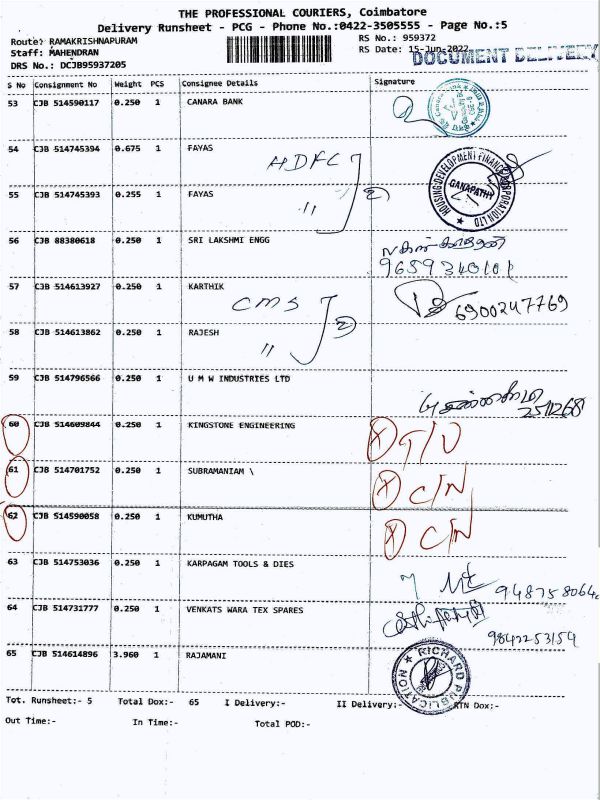 THE PROFESSIONAL COURIERS, Coimbatore
Delivery Runsheet - PCG - Phone No.:0422-3505555 - Page No.:5
Route: RAMAKRISHNAPURAM
RS No.: 959372
Staff: MAHENDRAN
RS Date: 15-Jun-2022
DOCUMENT DELIVERY
DRS No.: DCJB95937205
S No Consignment No Weight PCS Consignee Details Signature
53 CJB 514590117 0.250 1 CANARA BANK
54 CJB 514745394 0.675 1 FAYAS
HDFC
HOUSING DEVELOPMENT FINANCE CORPORATION LTD
GANAPATHY
55 CJB 514745393 0.255 1 FAYAS
"
56 CJB 88380618 0.250 1 SRI LAKSHMI ENGG
9659340101
57 CJB 514613927 0.250 1 KARTHIK
CMS
6900247769
58 CJB 514613862 0.250 1 RAJESH
"
59 CJB 514796566 0.250 1 U M W INDUSTRIES LTD
2511268
60 CJB 514609844 0.250 1 KINGSTONE ENGINEERING
61 CJB 514701752 0.250 1 SUBRAMANIAM \
X C/N
62 CJB 514590058 0.250 1 KUMUTHA
X C/N
63 CJB 514753036 0.250 1 KARPAGAM TOOLS & DIES
64 CJB 514731777 0.250 1 VENKATS WARA TEX SPARES
9842253154
65 CJB 514614896 3.960 1 RAJAMANI
RICHARD PUBLICATION
Tot. Runsheet:- 5 Total Dox:- 65 I Delivery:- II Delivery:- RTN Dox:-
Out Time:- In Time:- Total POD:-